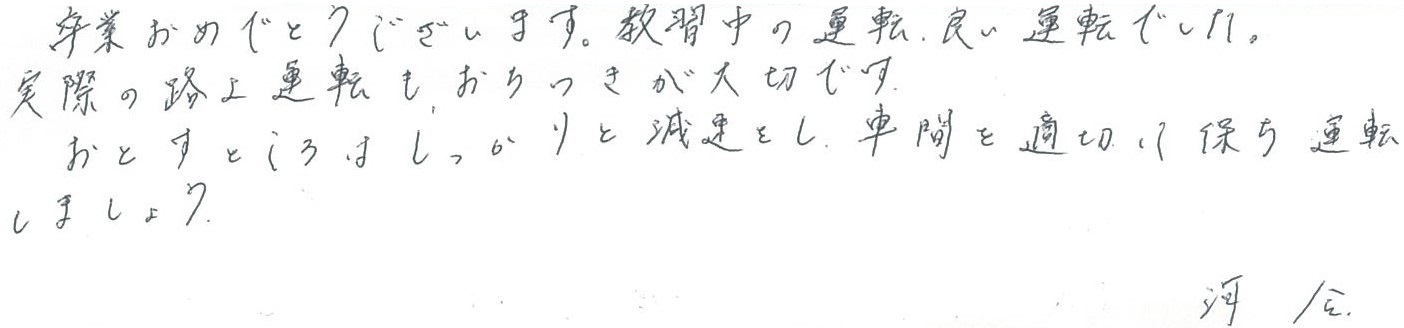 卒業おめでとうございます。教習中の運転、良い運転でした。
実際の路上運転も、おちつきが大切です。
おとすところはしっかりと減速をし、車間を適切に保ち運転
しましょう。
河合